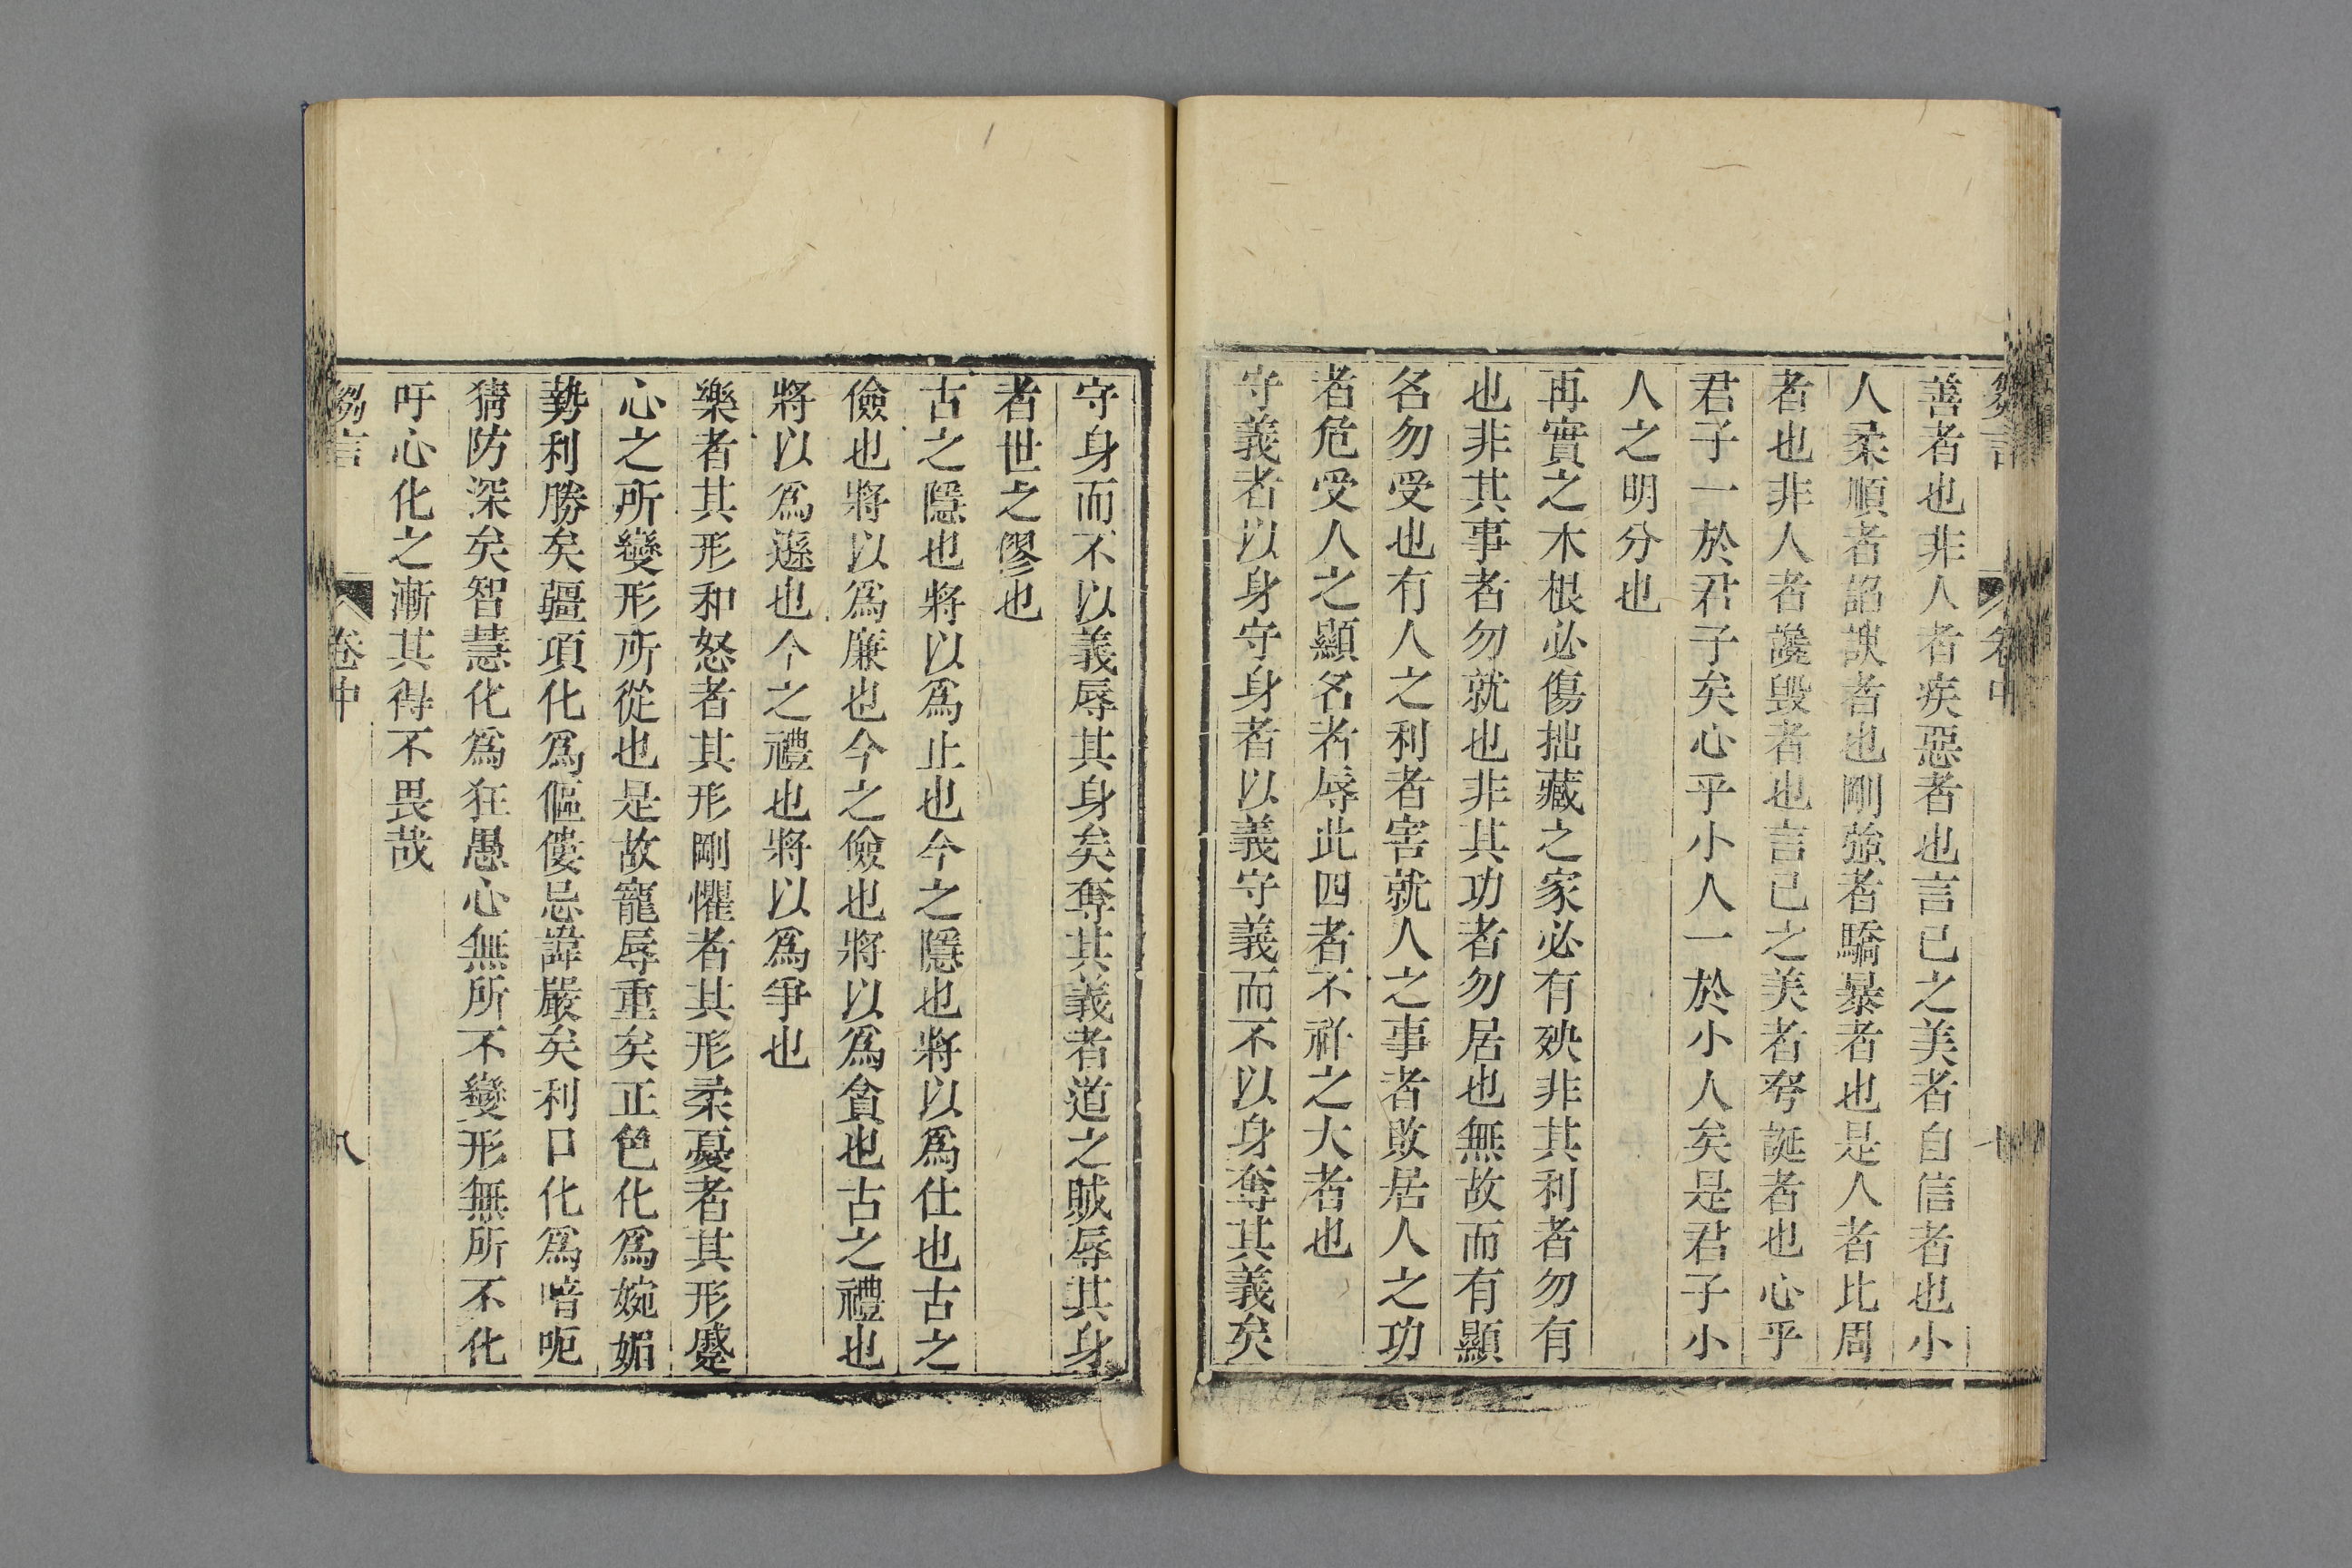 芻言 卷中 七
善者也非人者疾惡者也言己之美者自信者也小
人柔順者諂諛者也剛強者驕暴者也是人者比周
者也非人者讒毀者也言己之美者夸誕者也心乎
君子一於君子矣心乎小人一於小人矣是君子小
人之明分也
再實之木根必傷掘藏之家必有殃非其利者勿有
也非其事者勿就也非其功者勿居也無故而有顯
名勿受也有人之利者害就人之事者敗居人之功
者危受人之顯名者辱此四者不祥之大者也
守義者以身守身者以義守義而不以身奪其義矣
守身而不以義辱其身矣奪其義者道之賊辱其身
者世之僇也
古之隱也將以爲止也今之隱也將以爲仕也古之
儉也將以爲廉也今之儉也將以爲貪也古之禮也
將以爲遜也今之禮也將以爲爭也
樂者其形和怒者其形剛懼者其形柔憂者其形蹙
心之所變形所從也是故寵辱重矣正色化爲婉媚
勢利勝矣彊項化爲傴僂忌諱嚴矣利口化爲喑呃
猜防深矣智慧化爲狂愚心無所不變形無所不化
吁心化之漸其得不畏哉
芻言 卷中 八